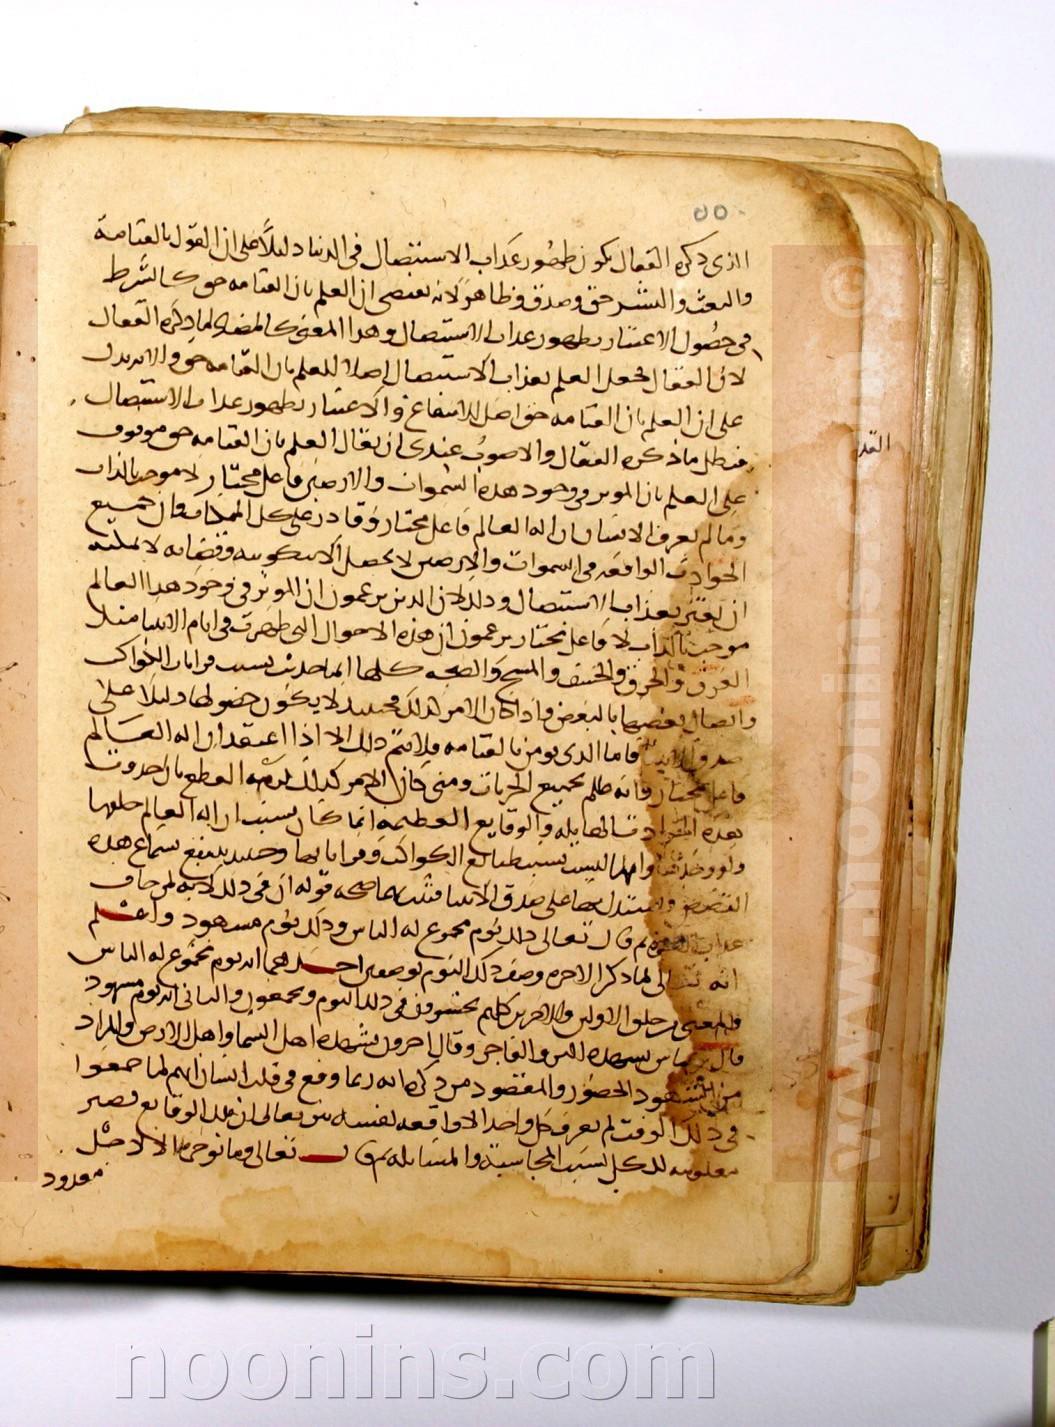 ٥٥
الذى ذكره القفال يكون ظهور عذاب الاستئصال فى الدنيا دليلاً على ان القول بالقيامة
والبعث والنشر حق وصدق وظاهر لانه يقتضى ان العلم بان القيامه حق كالشرط
فى حصول الاعتبار بظهور عذاب الاستيصال وهذا المعنى كالمضاد لما ذكره القفال
لان القفال يجعل العلم بعذاب الاستيصال اصلا للعلم بان القيامه حق
على ان العلم بان القيامه حق اصل للانتفاع والاعتبار بظهور عذاب الاستيصال
فبطل ما ذكره القفال والاصوب عندى ان يقال العلم بان القيامه حق موقوف
على العلم بان الموثر فى وجود هذه السموات والارضين فاعل مختار لا موجب بالذات
وما لم يعرف الانسان ان اله العالم فاعل مختار وقادر على كل الممكنات وان جميع
الحوادث الواقعه فى السموات والارضين لا يحصل الا بتكوينه وقضائه لا يمكنه
ان يعتبر بعذاب الاستيصال وذلك لان الذين يزعمون ان الموثر فى وجود هذا العالم
موجب بالذات لا فاعل مختار يزعمون ان هذه الاحوال التى ظهرت فى ايام الانبيا مثل
الغرق والحرق والخسف والمسخ والصيحه كلها انما حدثت بسبب قرانات الكواكب
واتصال بعضها بالبعض واذا كان الامر كذلك فحينئذ لا يكون حصولها دليلا على
صدق الانبيا فاما الذى يومن بالقيامه فلا يتم ذلك الا اذا اعتقد ان اله العالم
فاعل مختار وانه عالم بجميع الجزيات ومتى كان الامر كذلك لزمه القطع بان حدوث
هذه الحوادث الهايله والوقايع العظيمه انما كان بسبب ان اله العالم خلقها
واوجدها وانها ليست بسبب طبايع الكواكب وقراناتها وحينئذ ينتفع بسماع هذه
القصص ويستدل بها على صدق الانبيا فثبت بهذا صحه قوله ان فى ذلك لايه لمن خاف
عذاب الاخره ثم قال تعالى ذلك يوم مجموع له الناس وذلك يوم مشهود واعلم
انه تعالى لما ذكر الاخره وصف ذلك اليوم بوصفين احدهما انه يوم مجموع له الناس
والمعنى ان خلق الاولين والاخرين كلهم يحشرون فى ذلك اليوم ويجمعون والثانى انه يوم مشهود
قال بن عباس يشهده البر والفاجر وقال اخرون يشهده اهل السما واهل الارض والمراد
من الشهود الحضور والمقصود من ذكره انه ربما وقع فى قلب انسان انهم لما جمعوا
فى ذلك الوقت لم يعرف كل واحد الا واقعه نفسه بين تعالى ان تلك الوقايع تصير
معلومه للكل بسبب المحاسبة والمسايله ثم قال تعالى وما نوخره الا لاجل
معدود
القد
www.noonins.com ©
noonins.com